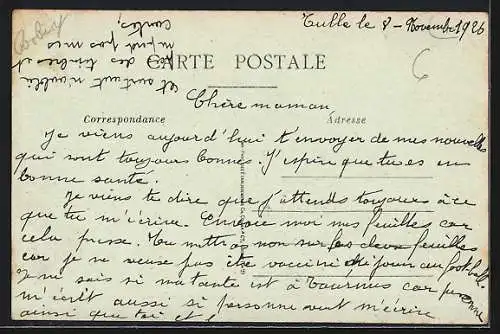 Tulle le 8 - Novembre 1926
CARTE POSTALE
Chère maman,
Correspondance
Adresse
Je viens aujourd'hui t'envoyer de mes nouvelles
qui sont toujours bonnes. J'espère que tu es en
bonne santé.
Je viens te dire que j'attends toujours à ce
que tu m'écrive. Envoie moi mes feuilles car
cela presse. Tu mettra non sur les deux feuilles
car je ne veuse pas être vacciné foot-ball.
Je ne sais si ma tante est à Tournus car personne
m'écrit aussi si personne veut m'écrire
ainsi que toi et
et surtout n'oublie
pas des timbres et
ne perd pas mes
cartes,